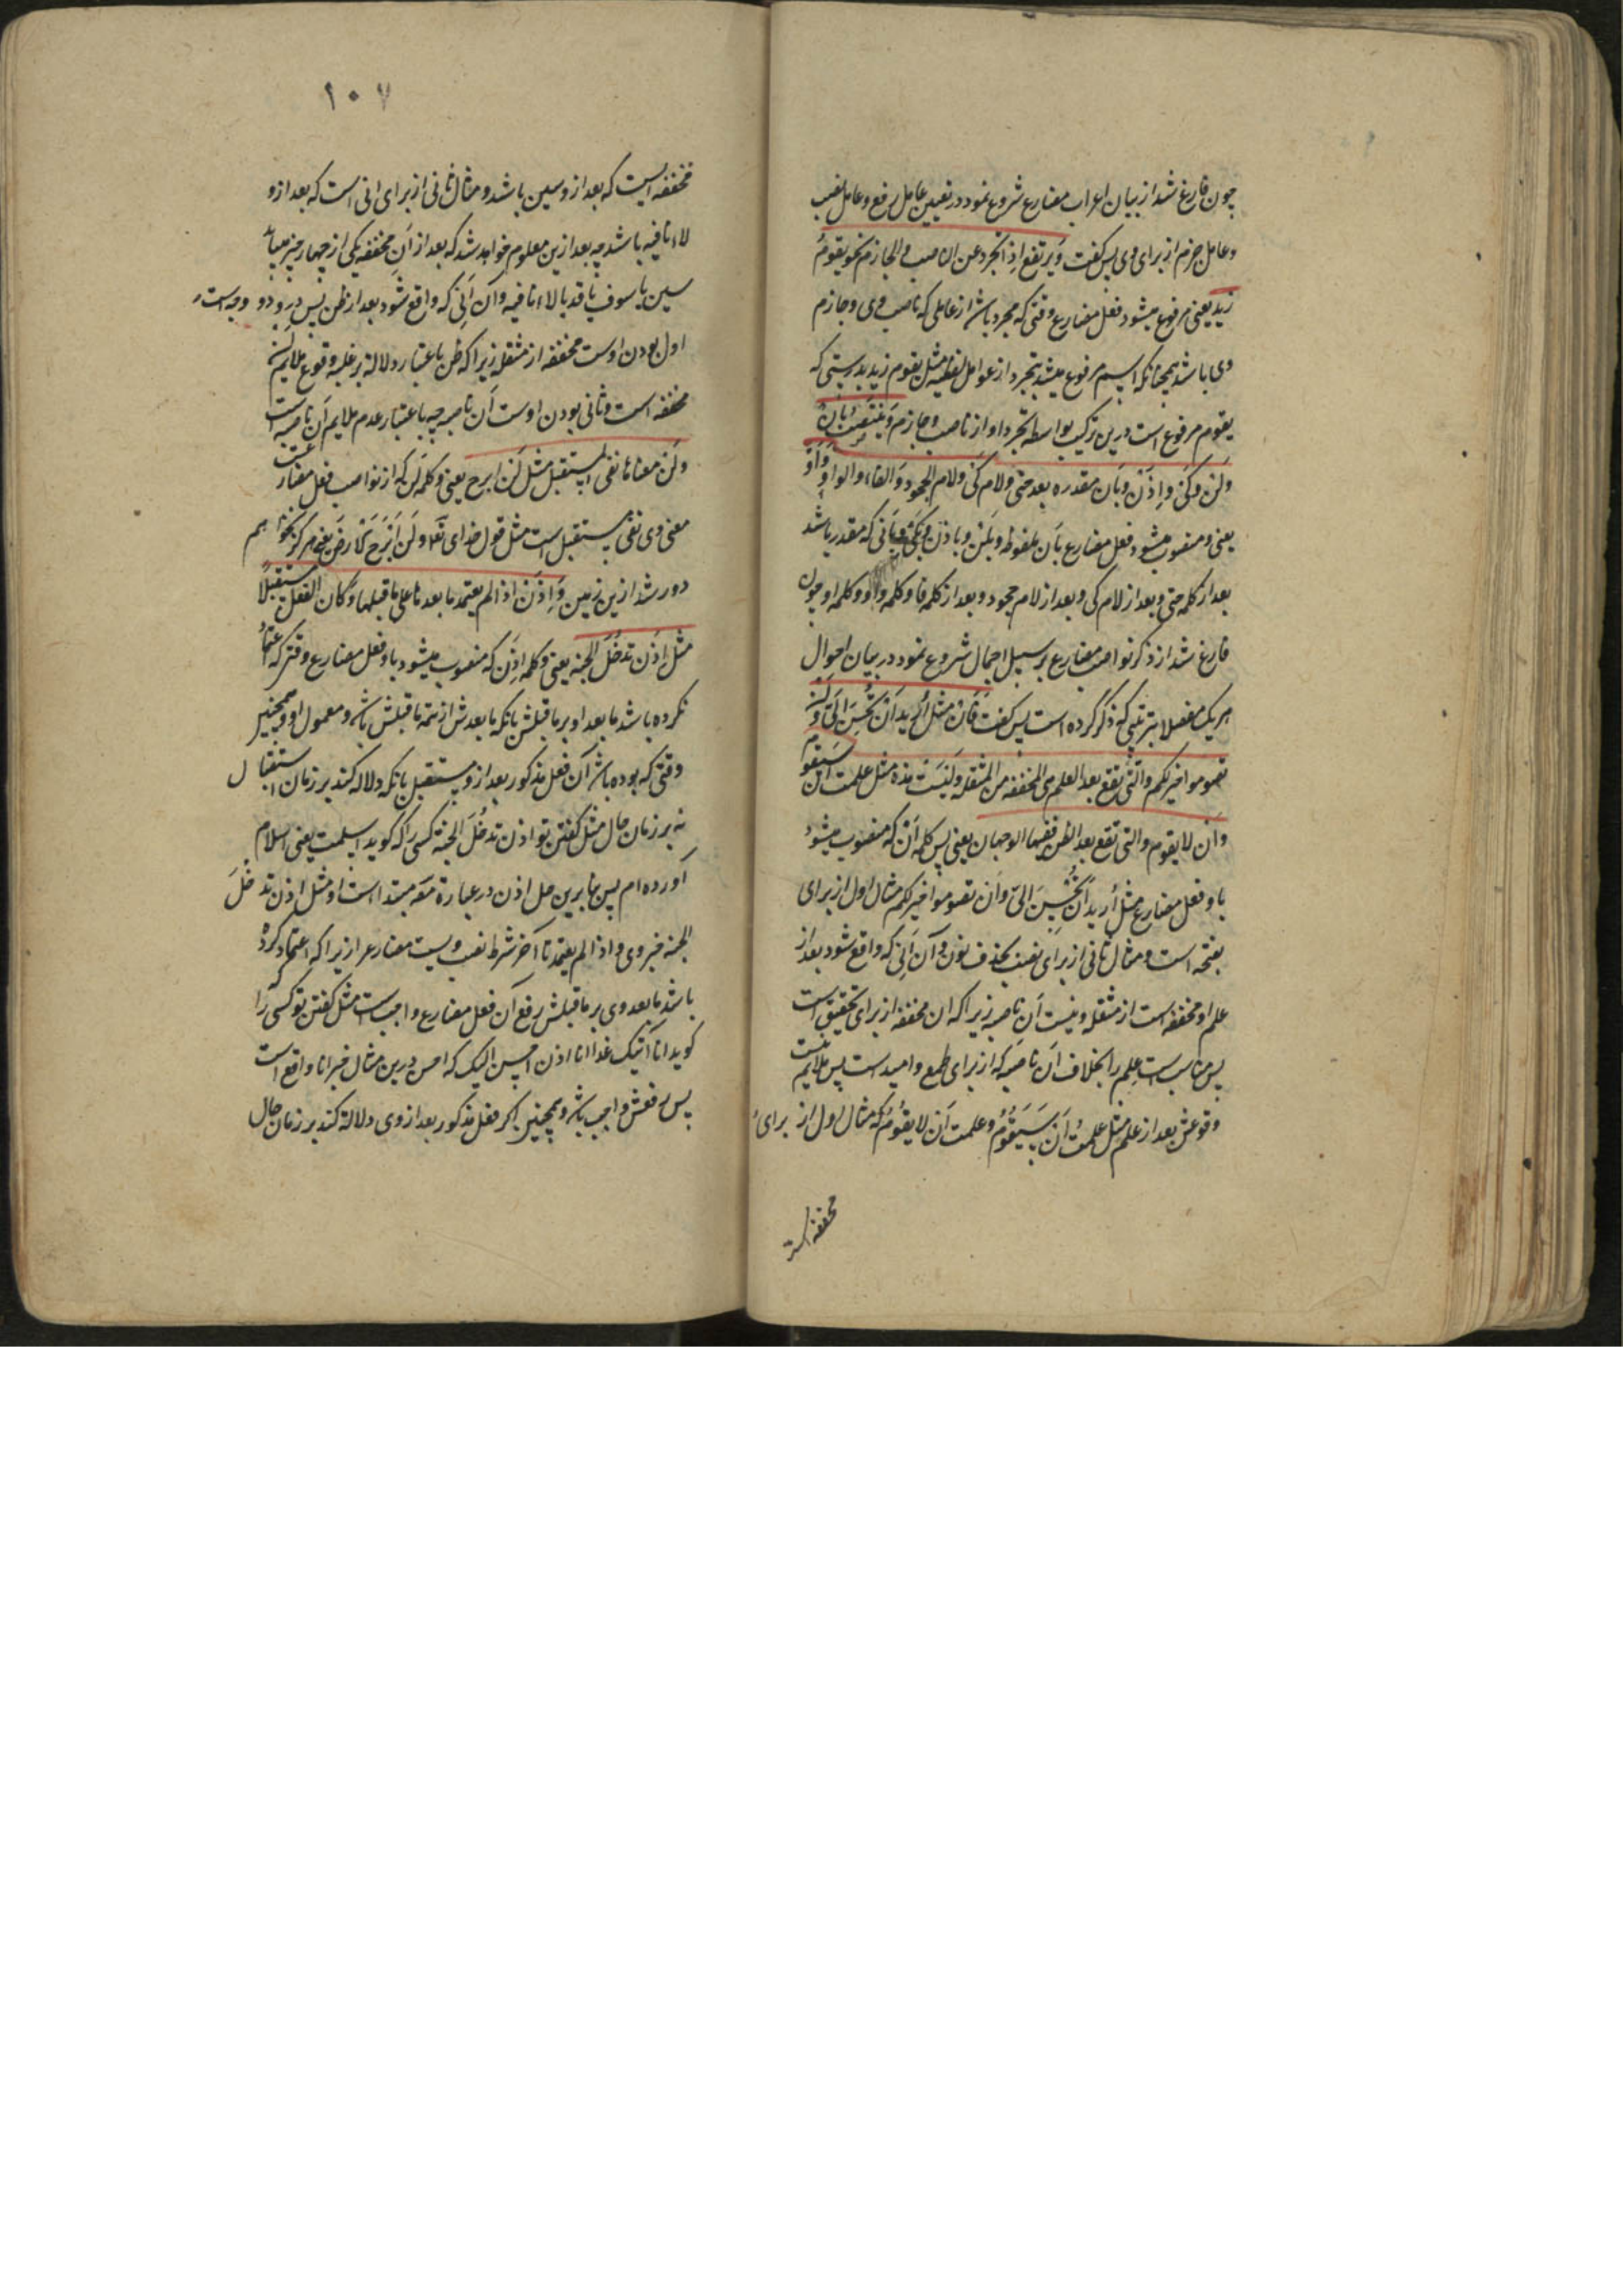 چون فارغ شد از بیان اعراب مضارع شروع نمود در تعیین عامل رفع و عامل نصب
و عامل جزم از برای وی پس گفت وَیرتفع اذا تجرد عن الناصب و الجازم نحو یقومُ
زید یعنی مرفوع میشود فعل مضارع وقتی که مجرد باشد از عاملی که ناصب وی و جازم
وی باشد همچنانکه اسم مرفوع میشد بتجرد از عوامل لفظیه مثل یقوم زید بدرستی که
یقوم مرفوع است درین ترکیب بواسطه تجرد او از ناصب و جازم وَینتصِبُ بِاَنْ
وَلَن وَکَی و اِذَن و بَان مقدره بعد حتی و لام کَی و لام الجحود وَالفاء و الواوِ وَاَوْ
یعنی و منصوب میشود فعل مضارع بَان ملفوظ و بَلن و باذن و بکَی و بَانی که مقدر باشد
بعد از کلمه حتی و بعد از لام کی و بعد از لام جحود و بعد از کلمه فا و کلمه واو و کلمه او چون
فارغ شد از ذکر نواصب مضارع بر سبیل اجمال شروع نمود در بیان احوال
هریک مفصلا بترتیبی که ذکر کرده است پس گفت فَاَنْ مثل اُرید اَنْ تُحْسِنَ اِلیّ وَاَن
تصوموا خیر لکم والتی تقع بعد العلم هی المخففه من المثقله وَلیسَتْ هذه مثل علمت ان سَیقوم
وَان لا یقوم والتی تقع بعد الظن ففیها الوجهان یعنی پس کلمه اَنْ که منصوب میشود
باو فعل مضارع مثل اُرید اَنْ تُحْسِنَ الیّ وَاَن تصوموا خیر لکم مثال اول از برای نصب
بفتحه است و مثال ثانی از برای نصب بحذف نون و آن اَنی که واقع شود بعد از
علم او مخففه است از مثقله و نیست اَن ناصبه زیرا که ان مخففه از برای تحقیق است
پس مناسب است علم را بخلاف اَن ناصبه که از برای طمع و امید است پس ملایم نیست
وقوعش بعد از علم مثل علمت اَن سَیَقُومُ و علمت اَن لا یقُومُ که مثال اول از برای
مخففه است
۱۰۷
مخففه ایست که بعد از و سین باشد و مثال ثانی از برای انی است که بعد از و
لاء نافیه باشد چه بعد ازین معلوم خواهد شد که بعد از اَن مخففه یکی از چهار چیز میباید
سین یا سوف یا قد یا لاء نافیه و آن اَنی که واقع شود بعد از ظن پس در و دو وجه است
اول بودن اوست مخففه از مثقله زیرا که ظن باعتبار دلالة بر غلبه وقوع ملایم اَن
مخففه است و ثانی بودن اوست اَن ناصبه چه باعتبار عدم ملایم اَن ناصبه است
وَلَن معناها نفی المستقبل مثل لَن ابرح یعنی و کلمه لَن که از نواصب فعل مضارعست
معنی وی نفی مستقبل است مثل قول خدای تعا وَلَن اَبْرَحَ الاَرضَ یعنی هرگز نخواهم
دور شد ازین زمین وَاِذَن اذا لم یعتمد ما بعدها علی ما قبلها وَکان الفعل مستقبلًا
مثل اذَن تَدخُلَ الجنه یعنی و کلمه اِذَن که منصوب میشود باو فعل مضارع وقتی که اعتماد
نکرده باشد ما بعد او بر ما قبلش بانکه ما بعدش از تتمه ما قبلش باشد و معمول او و همچنین
وقتی که بوده باشد آن فعل مذکور بعد از و مستقبل بانکه دلاله کند بر زمان استقبال
نه بر زمان حال مثل گفتن تو اذن تدخُلَ الجنة کسی را که گوید اسلمت یعنی اسلام
آورده ام پس بنابرین حل اذن در عبارة مصَ مبتداست و مثل اذن تدخلَ
الجنه خبر وی و اذا لم یعتمد تا آخر شرط نصب ویست مضارع را زیرا که اگر اعتماد کرده
باشد ما بعد وی بر ما قبلش رفع آن فعل مضارع واجب است مثل گفتن تو کسی را که
گوید انا آتیک غدا انا اذن احسن الیک که احسن درین مثال خبر انا واقع است
پس رفعش واجب باشد و همچنین اگر فعل مذکور بعد از وی دلالة کند بر زمان حال